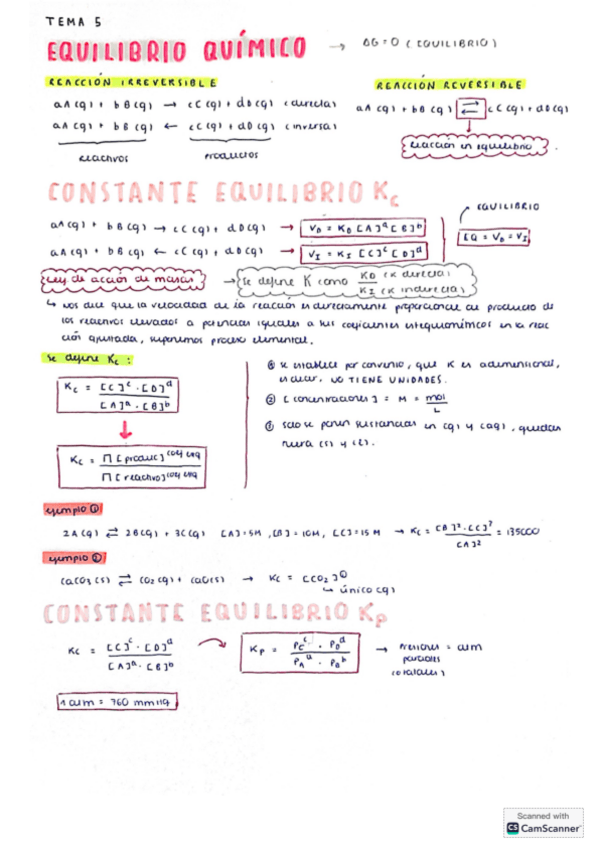 TEMA 5
EQUILIBRIO QUÍMICO → ΔG=0 (EQUILIBRIO)
REACCIÓN IRREVERSIBLE
aA(g) + bB(g) → cC(g) + dD(g) (directa)
aA(g) + bB(g) ← cC(g) + dD(g) (inversa)
reactivos productos
REACCIÓN REVERSIBLE
aA(g) + bB(g) ⇄ cC(g) + dD(g)
reacción en equilibrio
CONSTANTE EQUILIBRIO Kc
aA(g) + bB(g) → cC(g) + dD(g) → V_D = K_D [A]^a [B]^b
aA(g) + bB(g) ← cC(g) + dD(g) → V_I = K_I [C]^c [D]^d
EQUILIBRIO
EQ = V_D = V_I
Ley de acción de masas → Se define K como K_D (K directa) / K_I (K indirecta)
↳ nos dice que la velocidad de la reacción es directamente proporcional al producto de
los reactivos elevados a potencias iguales a sus coeficientes estequiométricos en la reac
ción ajustada, suponemos proceso elemental.
Se define Kc:
Kc = [C]^c · [D]^d / [A]^a · [B]^b
Kc = Π [produc]^coef esq / Π [reactivo]^coef esq
se establece por convenio, que K es adimensional,
es decir, NO TIENE UNIDADES.
② [concentraciones] = M = mol/L
solo se ponen sustancias en (g) y (aq), quedan
fuera (s) y (l).
ejemplo ①
2A(g) ⇄ 2B(g) + 3C(g) [A]=5M, [B]=10M, [C]=15M → Kc = [B]²·[C]³ / [A]² = 13500
ejemplo ②
CaCO₃(s) ⇄ CO₂(g) + CaO(s) → Kc = [CO₂]
↳ único (g)
CONSTANTE EQUILIBRIO Kp
Kc = [C]^c · [D]^d / [A]^a · [B]^b
Kp = P_C^c · P_D^d / P_A^a · P_B^b → Presiones = atm
parciales
(o totales)
1 atm = 760 mmHg
Scanned with
CS CamScanner